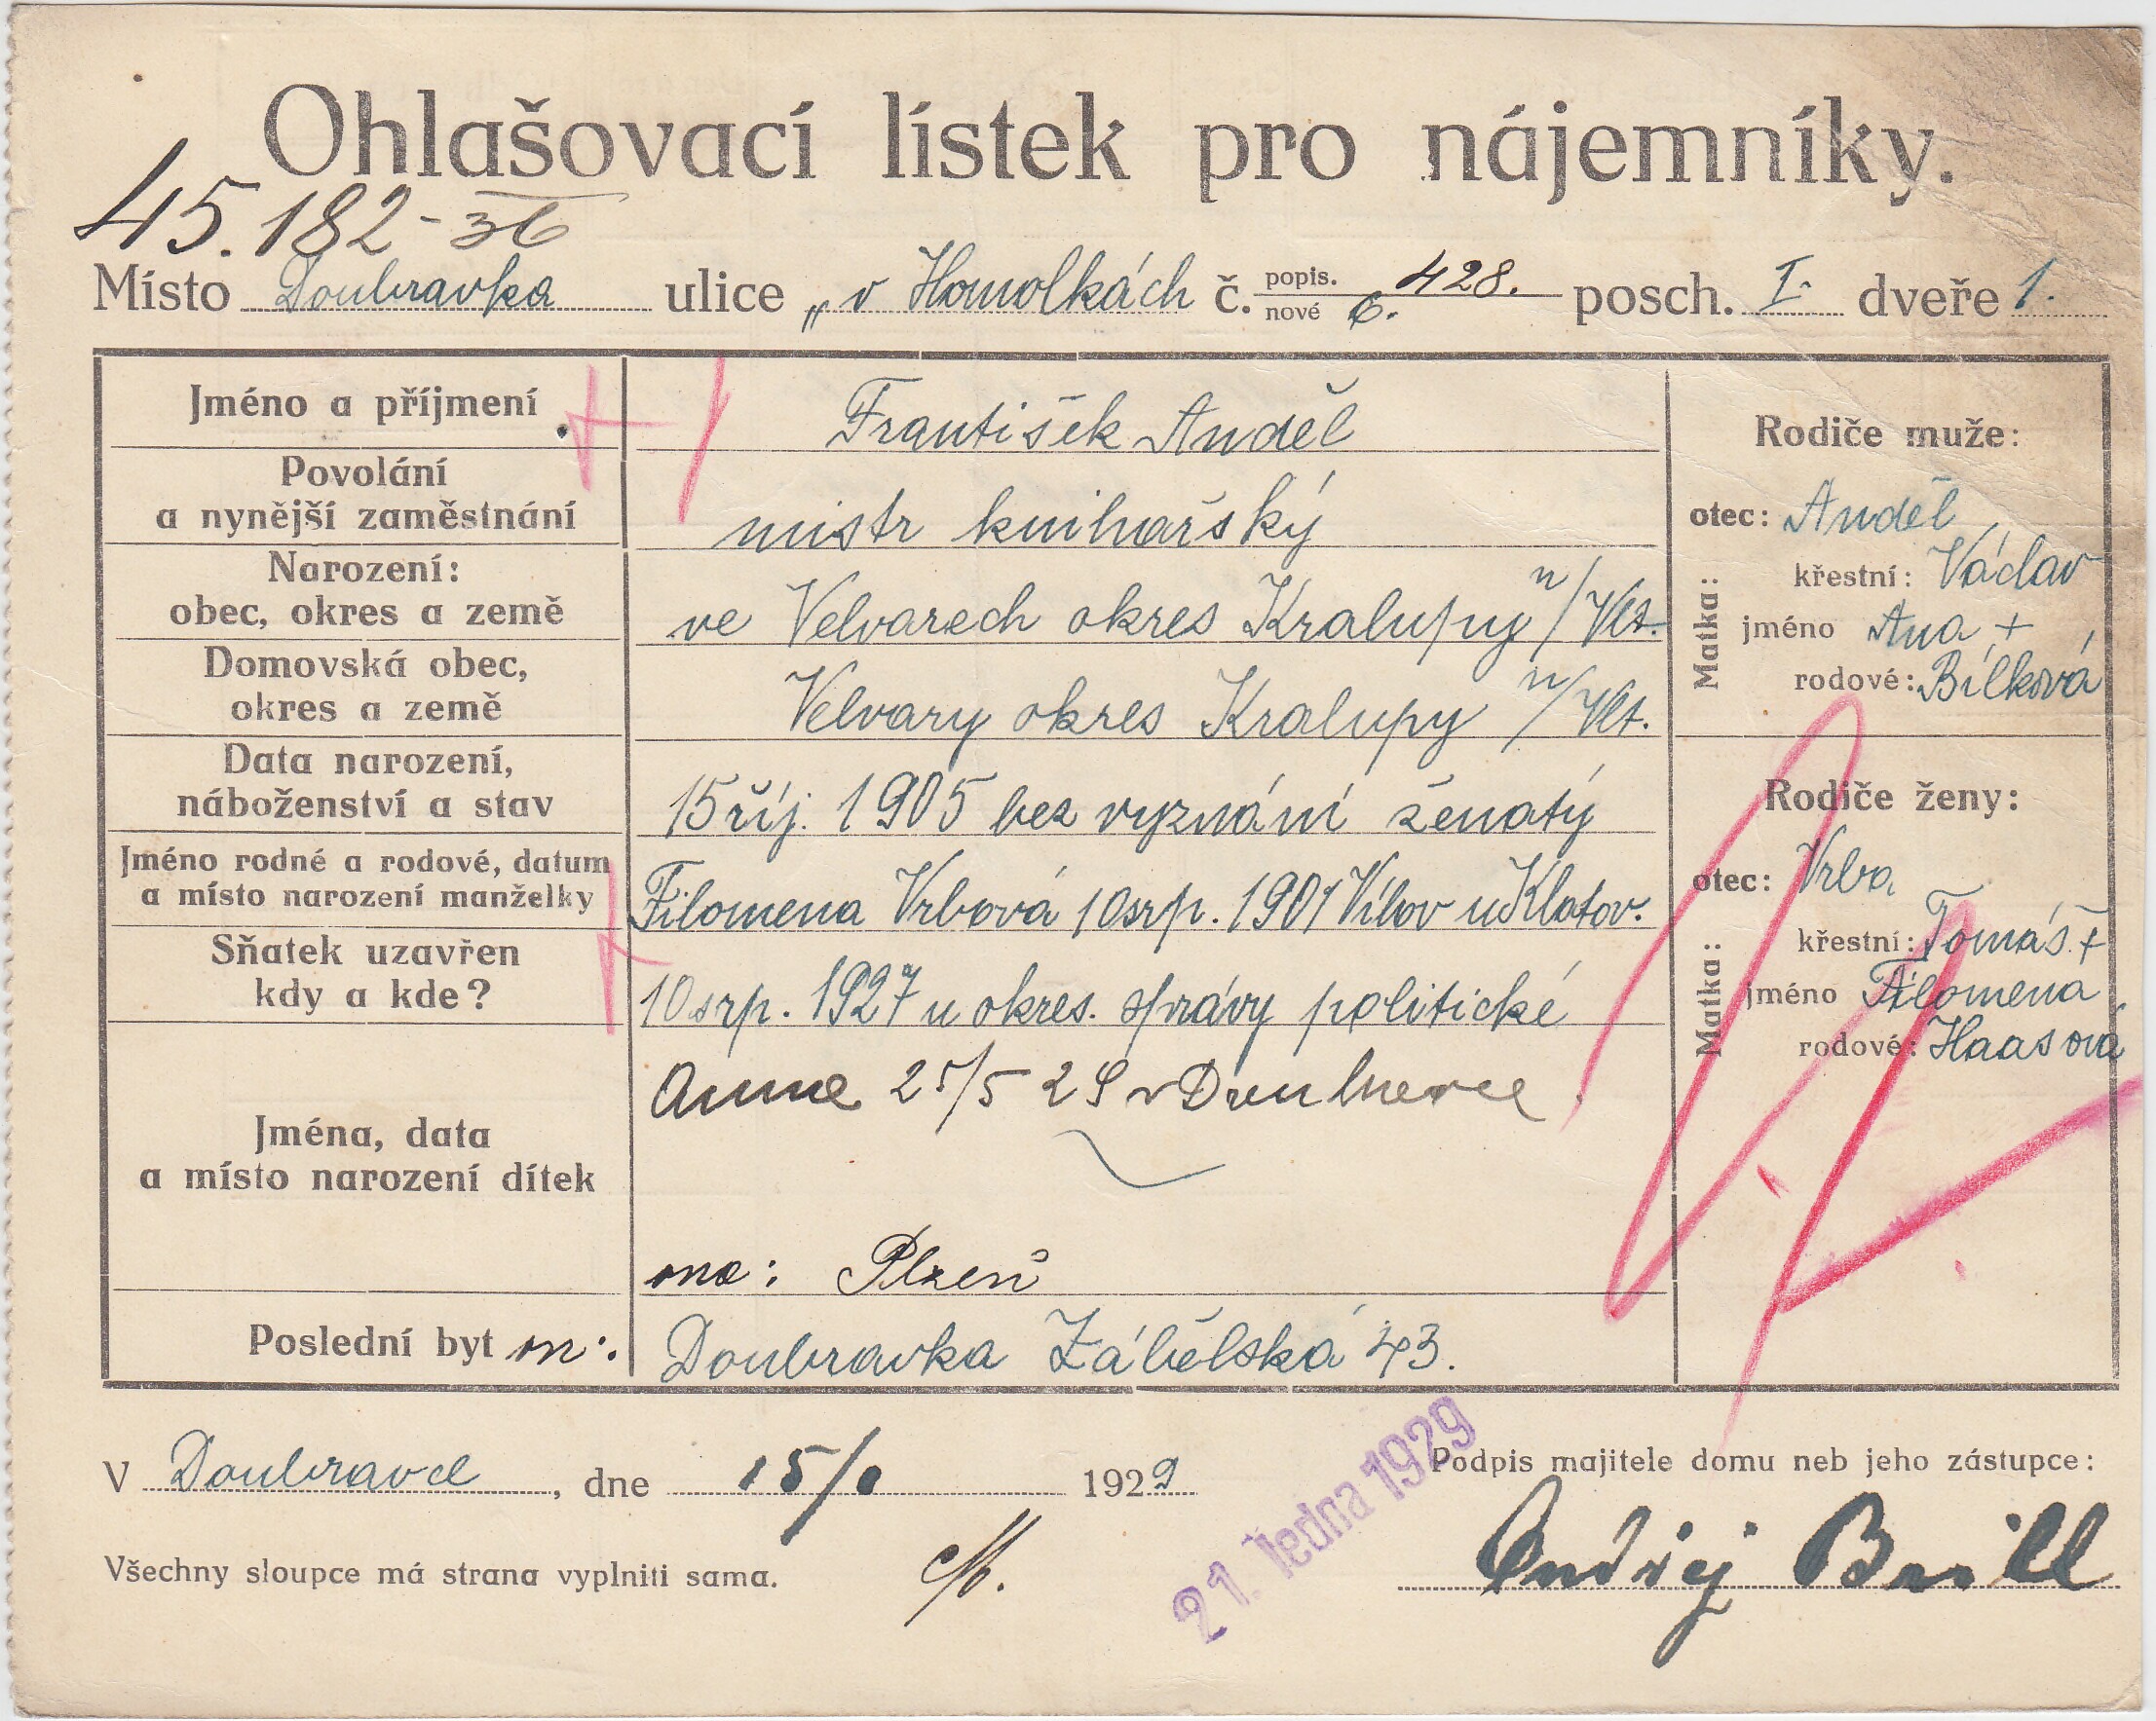 Ohlašovací lístek pro nájemníky.
45.182-36
Místo Doubravka ulice „v Homolkách č. popis. 428. nové 6. posch. I. dveře 1.
Jméno a příjmení
František Anděl
Povolání
a nynější zaměstnání
mistr knihařský
Narození:
obec, okres a země
ve Velvarech okres Kralupy n/Vlt.
Domovská obec,
okres a země
Velvary okres Kralupy n/Vlt.
Data narození,
náboženství a stav
15 říj. 1905 bez vyznání ženatý
Jméno rodné a rodové, datum
a místo narození manželky
Filomena Vrbová 10 srp. 1901 Víbov u Klatov.
Sňatek uzavřen
kdy a kde?
10 srp. 1927 u okres. správy politické
Jména, data
a místo narození dítek
25/5 29 v
ona: Plzeň
Poslední byt on:
Doubravka Zábělská 43.
Rodiče muže:
otec: Anděl
křestní: Václav
Matka: jméno Ana +
rodové: Bílková
Rodiče ženy:
otec: Vrba
křestní: Tomáš. +
Matka: jméno Filomena
rodové: Haasová
V Doubravce, dne 15/1 1929
21. ledna 1929
Podpis majitele domu neb jeho zástupce:
Všechny sloupce má strana vyplniti sama.
Ondřej Brill